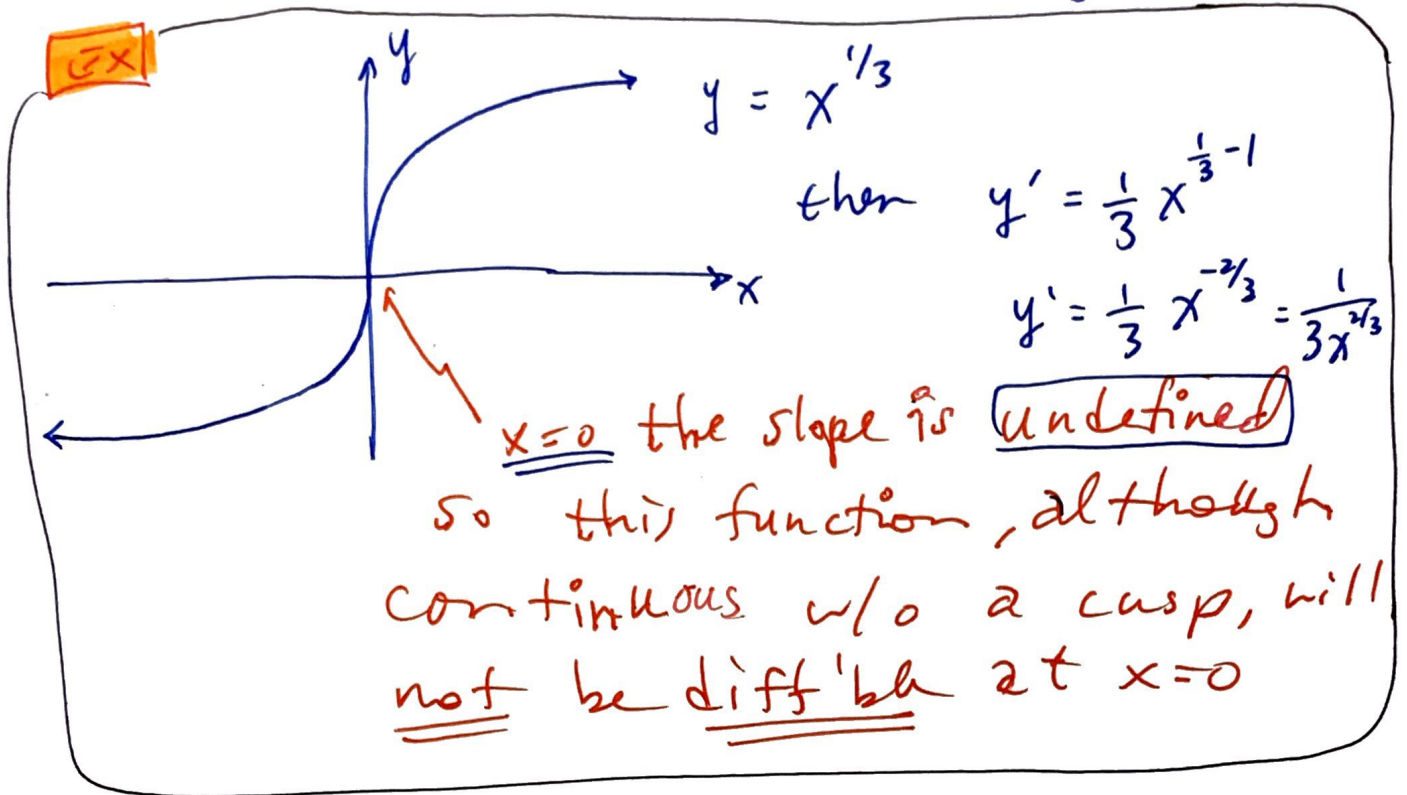 Ex
y
y = x^{1/3}
then y' = \frac{1}{3} x^{\frac{1}{3}-1}
x
y' = \frac{1}{3} x^{-2/3} = \frac{1}{3x^{2/3}}
x=0 the slope is undefined
so this function, although
continuous w/o a cusp, will
not be diff'ble at x=0